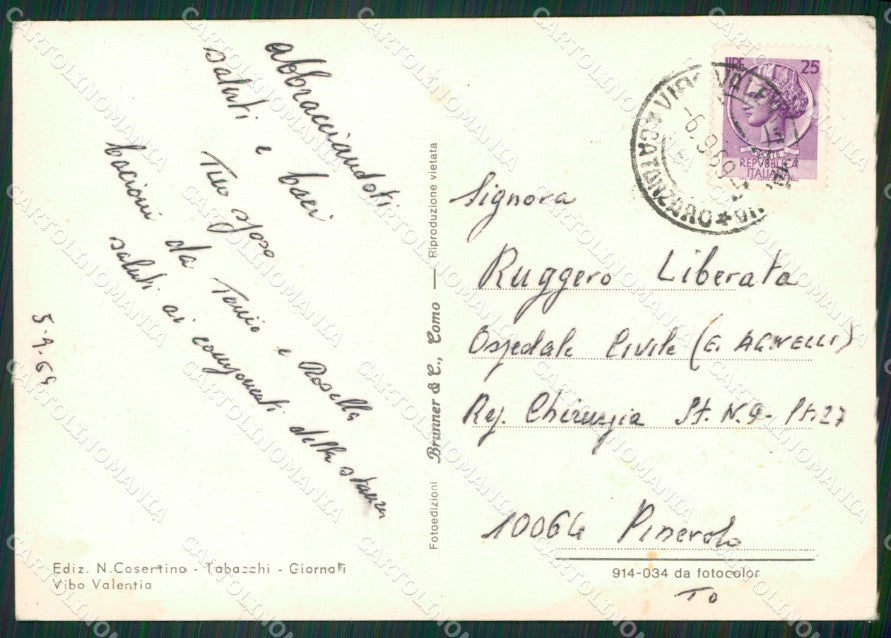 abbracciandoti
saluti e baci
Tuo sposo
bacioni da Tonio e Rosella
saluti ai componenti della stanza
5-9-69
Ediz. N. Cosertino - Tabacchi - Giornali
Vibo Valentia
Fotoedizioni Brunner & C., Como — Riproduzione vietata
LIRE 25
POSTE
REPUBBLICA
ITALIANA
VIBO VALENTIA
-6.9.69
CATANZARO
Signora
Ruggero Liberata
Ospedale Civile (E. AGNELLI)
Rep. Chirurgia St. N. 9 - Pt. 27
10064 Pinerolo
914-034 da fotocolor
TO
CARTOLINOMANIA